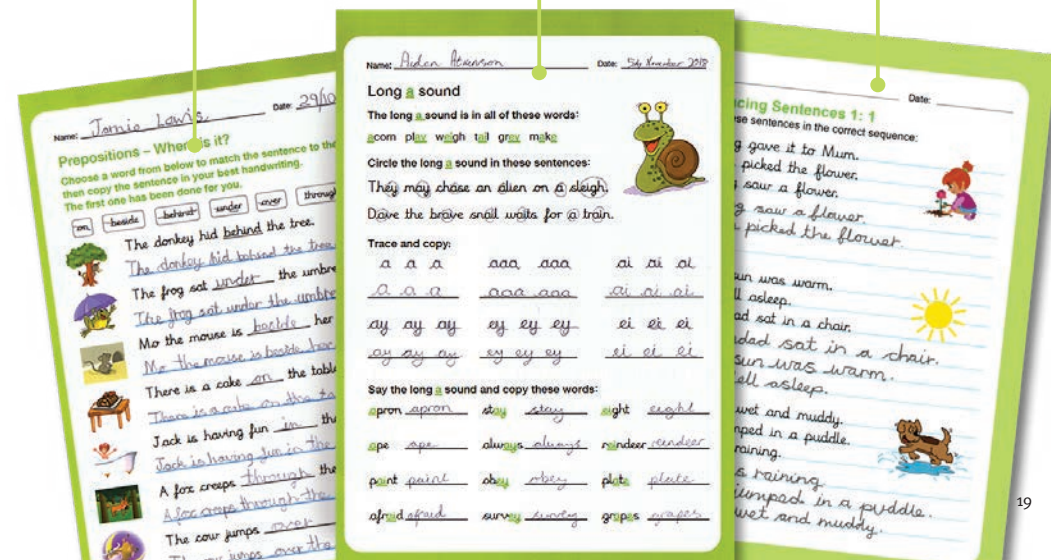 Name: Jamie Lewis. Date: 29/10
Prepositions – Where is it?
Choose a word from below to match the sentence to the
then copy the sentence in your best handwriting.
The first one has been done for you.
on beside behind under over through
The donkey hid behind the tree.
The donkey hid behind the tree
The frog sat under the umbre
The frog sat under the umbre
Mo the mouse is beside her
Mo the mouse is beside her
There is a cake on the table
There is a cake on the ta
Jack is having fun in the
Jack is having fun in the
A fox creeps through the
A fox creeps through the
The cow jumps over
The cow jumps over the
Name: Aiden Atkinson Date: 5th November 2018
Long a sound
The long a sound is in all of these words:
acorn play weigh tail grey make
Circle the long a sound in these sentences:
They may chase an alien on a sleigh.
Dave the brave snail waits for a train.
Trace and copy:
a a a aaa aaa ai ai ai
a a a aaa aaa ai ai ai
ay ay ay ey ey ey ei ei ei
ay ay ay ey ey ey ei ei ei
Say the long a sound and copy these words:
apron apron stay stay eight eight
ape ape always always reindeer reindeer
paint paint obey obey plate plate
afraid afraid survey survey grapes grapes
Date:
cing Sentences 1: 1
se sentences in the correct sequence:
g gave it to Mum.
picked the flower.
saw a flower.
g saw a flower.
picked the flower.
un was warm.
ll asleep.
ad sat in a chair.
dad sat in a chair.
sun was warm.
ell asleep.
wet and muddy.
mped in a puddle.
raining.
s raining
jumped in a puddle.
wet and muddy.
19